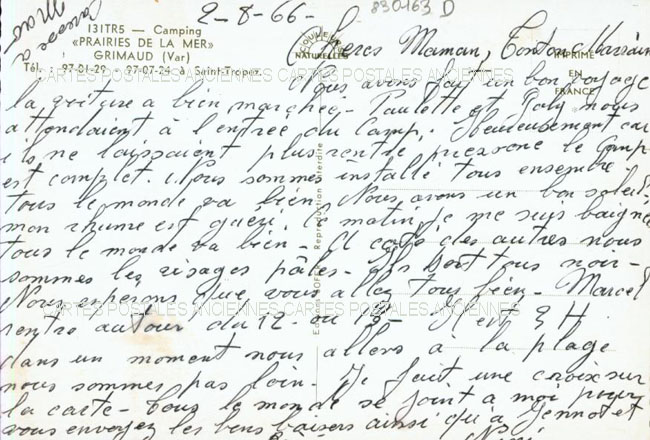 2-8-66-
830163 D
131TR5 — Camping
«PRAIRIES DE LA MER»
GRIMAUD (Var)
Tél. : 97-01-29 97-07-24 à Saint-Tropez.
COULEURS
NATURELLES
IMPRIMÉ
EN
FRANCE
Reproduction interdite
CARTES POSTALES ANCIENNES CARTES POSTALES ANCIENNES
Chères Maman, Tontons Marraine
Nous avons fait un bon voyage
la voiture a bien marchée - Paulette et nous
attendaient à l'entrée du Camp. Heureusement car
ils ne laissaient plus rentré personne le Camp
est complet. Nous sommes installé tous ensemble.
tous le monde va bien. Nous avons un bon soleil
mon rhume est guéri. Ce matin je me suis baigné
tous le monde va bien - A coté des autres nous
sommes les visages pâles - Ils sont tous noir -
Nous espérons que vous allez tous bien - Marcel
CARTES POSTALES ANCIENNES CARTES POSTALES ANCIENNES
rentre autour du 12 ou 13 - Il est 3 H
dans un moment nous allons à la plage
nous sommes pas loin - Je fait une croix sur
la carte - tous le monde se joint a moi pour
vous envoyez les bons baisers ainsi qu'a et